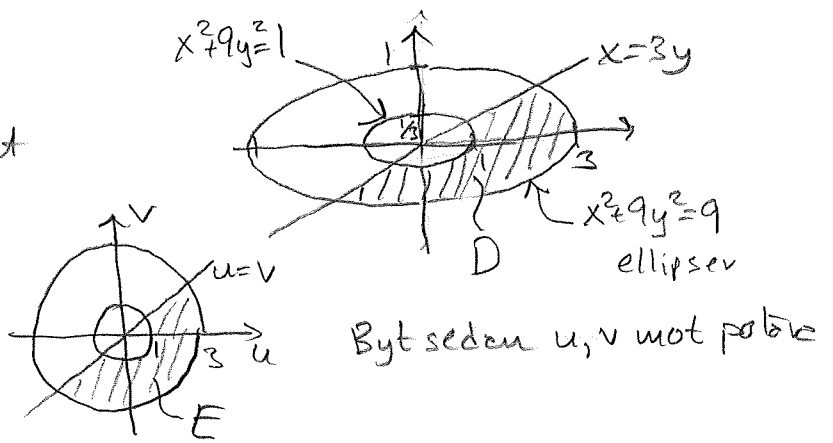 x²+9y²=1
1
x=3y
1/3
1
3
x²+9y²=9
D
ellipser
v
u=v
1
3
u
E
Byt sedan u, v mot polära